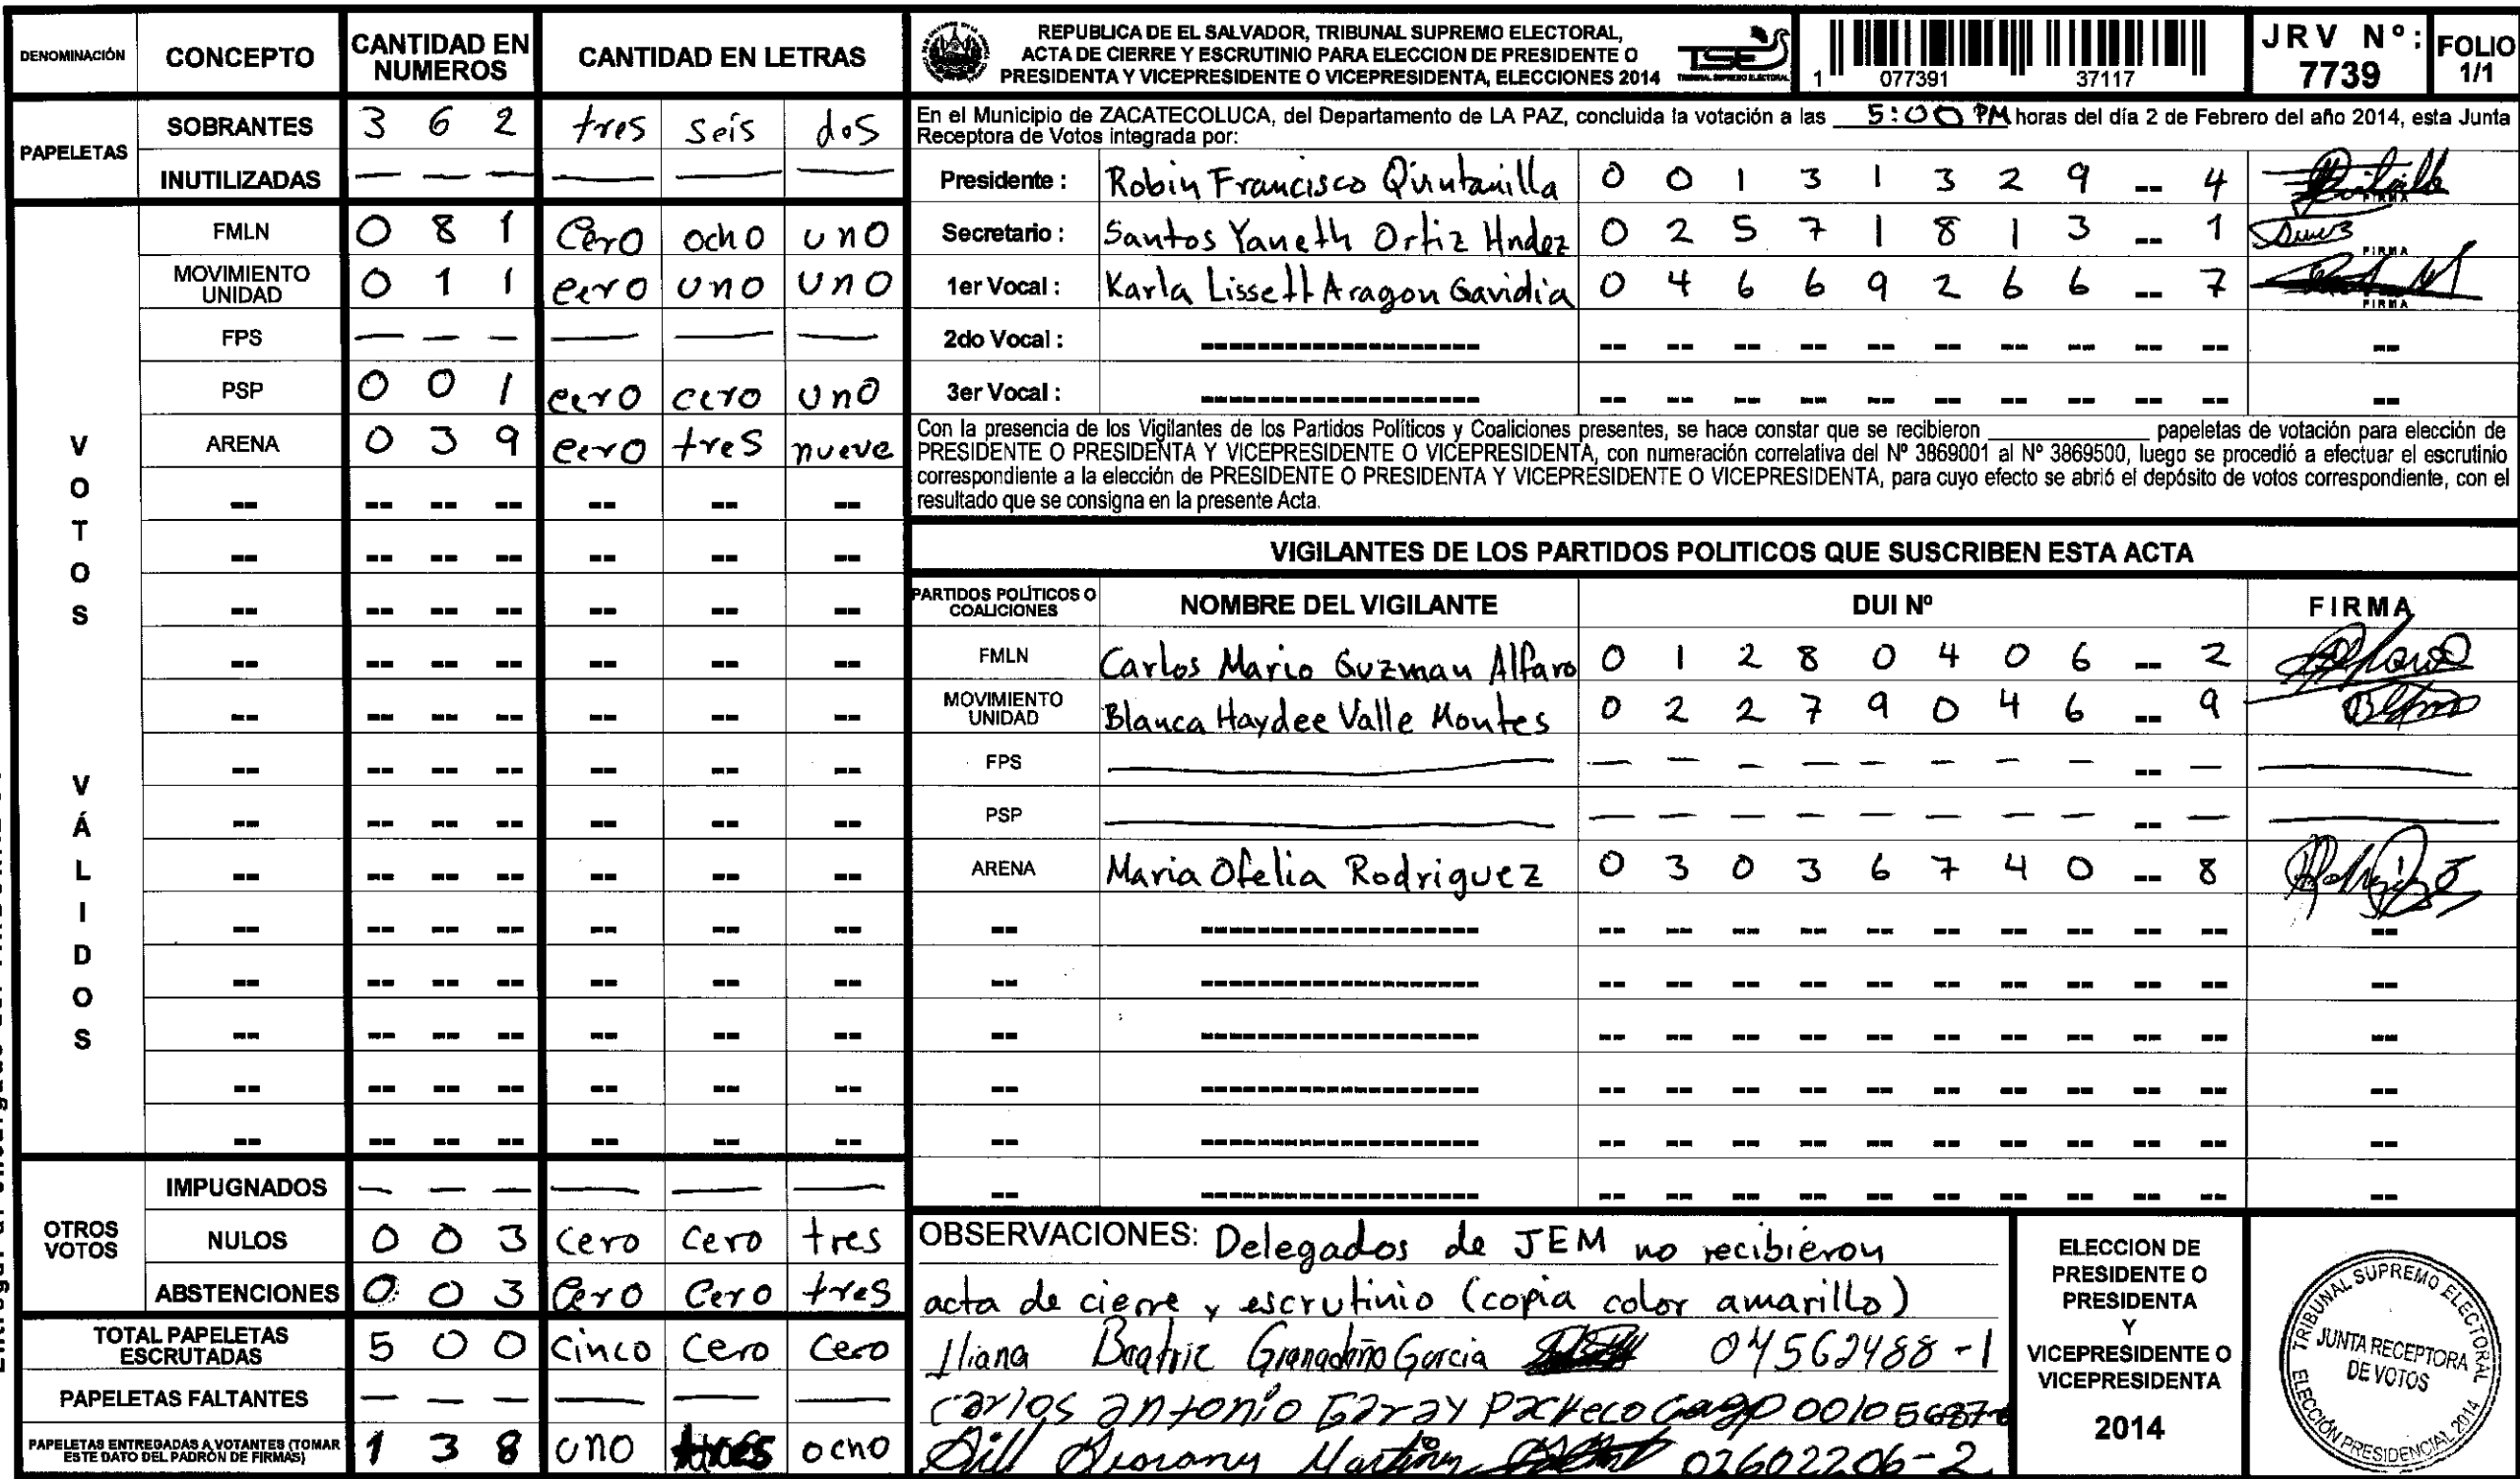 DENOMINACIÓN CONCEPTO CANTIDAD EN NUMEROS CANTIDAD EN LETRAS
PAPELETAS
SOBRANTES 3 6 2 tres seis dos
INUTILIZADAS — — — — — —
VOTOS VÁLIDOS
FMLN 0 8 1 Cero ocho uno
MOVIMIENTO UNIDAD 0 1 1 cero uno uno
FPS — — — — — —
PSP 0 0 1 cero cero uno
ARENA 0 3 9 cero tres nueve
OTROS VOTOS
IMPUGNADOS — — — — — —
NULOS 0 0 3 cero cero tres
ABSTENCIONES 0 0 3 Cero Cero tres
TOTAL PAPELETAS ESCRUTADAS 5 0 0 Cinco Cero Cero
PAPELETAS FALTANTES — — — — — —
PAPELETAS ENTREGADAS A VOTANTES (TOMAR ESTE DATO DEL PADRÓN DE FIRMAS) 1 3 8 uno tres ocho
REPUBLICA DE EL SALVADOR, TRIBUNAL SUPREMO ELECTORAL,
ACTA DE CIERRE Y ESCRUTINIO PARA ELECCION DE PRESIDENTE O
PRESIDENTA Y VICEPRESIDENTE O VICEPRESIDENTA, ELECCIONES 2014
TSE
TRIBUNAL SUPREMO ELECTORAL
1 077391 37117
JRV Nº: 7739
FOLIO 1/1
En el Municipio de ZACATECOLUCA, del Departamento de LA PAZ, concluida la votación a las 5:00 PM horas del día 2 de Febrero del año 2014, esta Junta
Receptora de Votos integrada por:
Presidente : Robin Francisco Quintanilla 0 0 1 3 1 3 2 9 -- 4 FIRMA
Secretario : Santos Yaneth Ortiz Hndez 0 2 5 7 1 8 1 3 -- 1 FIRMA
1er Vocal : Karla Lissett Aragon Gavidia 0 4 6 6 9 2 6 6 -- 7 FIRMA
2do Vocal :
3er Vocal :
Con la presencia de los Vigilantes de los Partidos Políticos y Coaliciones presentes, se hace constar que se recibieron ________ papeletas de votación para elección de
PRESIDENTE O PRESIDENTA Y VICEPRESIDENTE O VICEPRESIDENTA, con numeración correlativa del Nº 3869001 al Nº 3869500, luego se procedió a efectuar el escrutinio
correspondiente a la elección de PRESIDENTE O PRESIDENTA Y VICEPRESIDENTE O VICEPRESIDENTA, para cuyo efecto se abrió el depósito de votos correspondiente, con el
resultado que se consigna en la presente Acta.
VIGILANTES DE LOS PARTIDOS POLITICOS QUE SUSCRIBEN ESTA ACTA
PARTIDOS POLÍTICOS O COALICIONES NOMBRE DEL VIGILANTE DUI Nº FIRMA
FMLN Carlos Mario Guzman Alfaro 0 1 2 8 0 4 0 6 -- 2
MOVIMIENTO UNIDAD Blanca Haydee Valle Montes 0 2 2 7 9 0 4 6 -- 9
FPS — — — — — — — — -- —
PSP — — — — — — — — -- —
ARENA Maria Ofelia Rodriguez 0 3 0 3 6 7 4 0 -- 8
OBSERVACIONES: Delegados de JEM no recibieron
acta de cierre y escrutinio (copia color amarillo)
Iliana Beatriz Granadeño Garcia 04562488-1
Carlos antonio Garay Pacheco
Martinez 02602206-2
ELECCION DE
PRESIDENTE O
PRESIDENTA
Y
VICEPRESIDENTE O
VICEPRESIDENTA
2014
TRIBUNAL SUPREMO ELECTORAL
JUNTA RECEPTORA
DE VOTOS
ELECCIÓN PRESIDENCIAL 2014